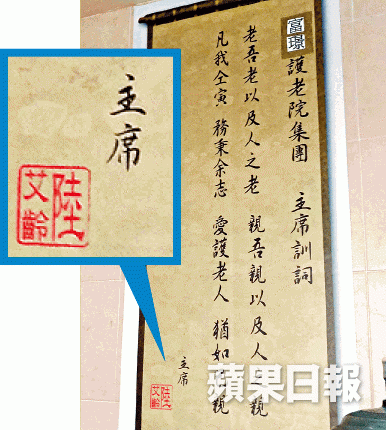 富璟
護老院集團 主席訓詞
老吾老以及人之老 親吾親以及人之親
凡我仝寅 務秉余志 愛護老人 猶如親
主席
陸艾齡
主席
陸艾齡
蘋果日報